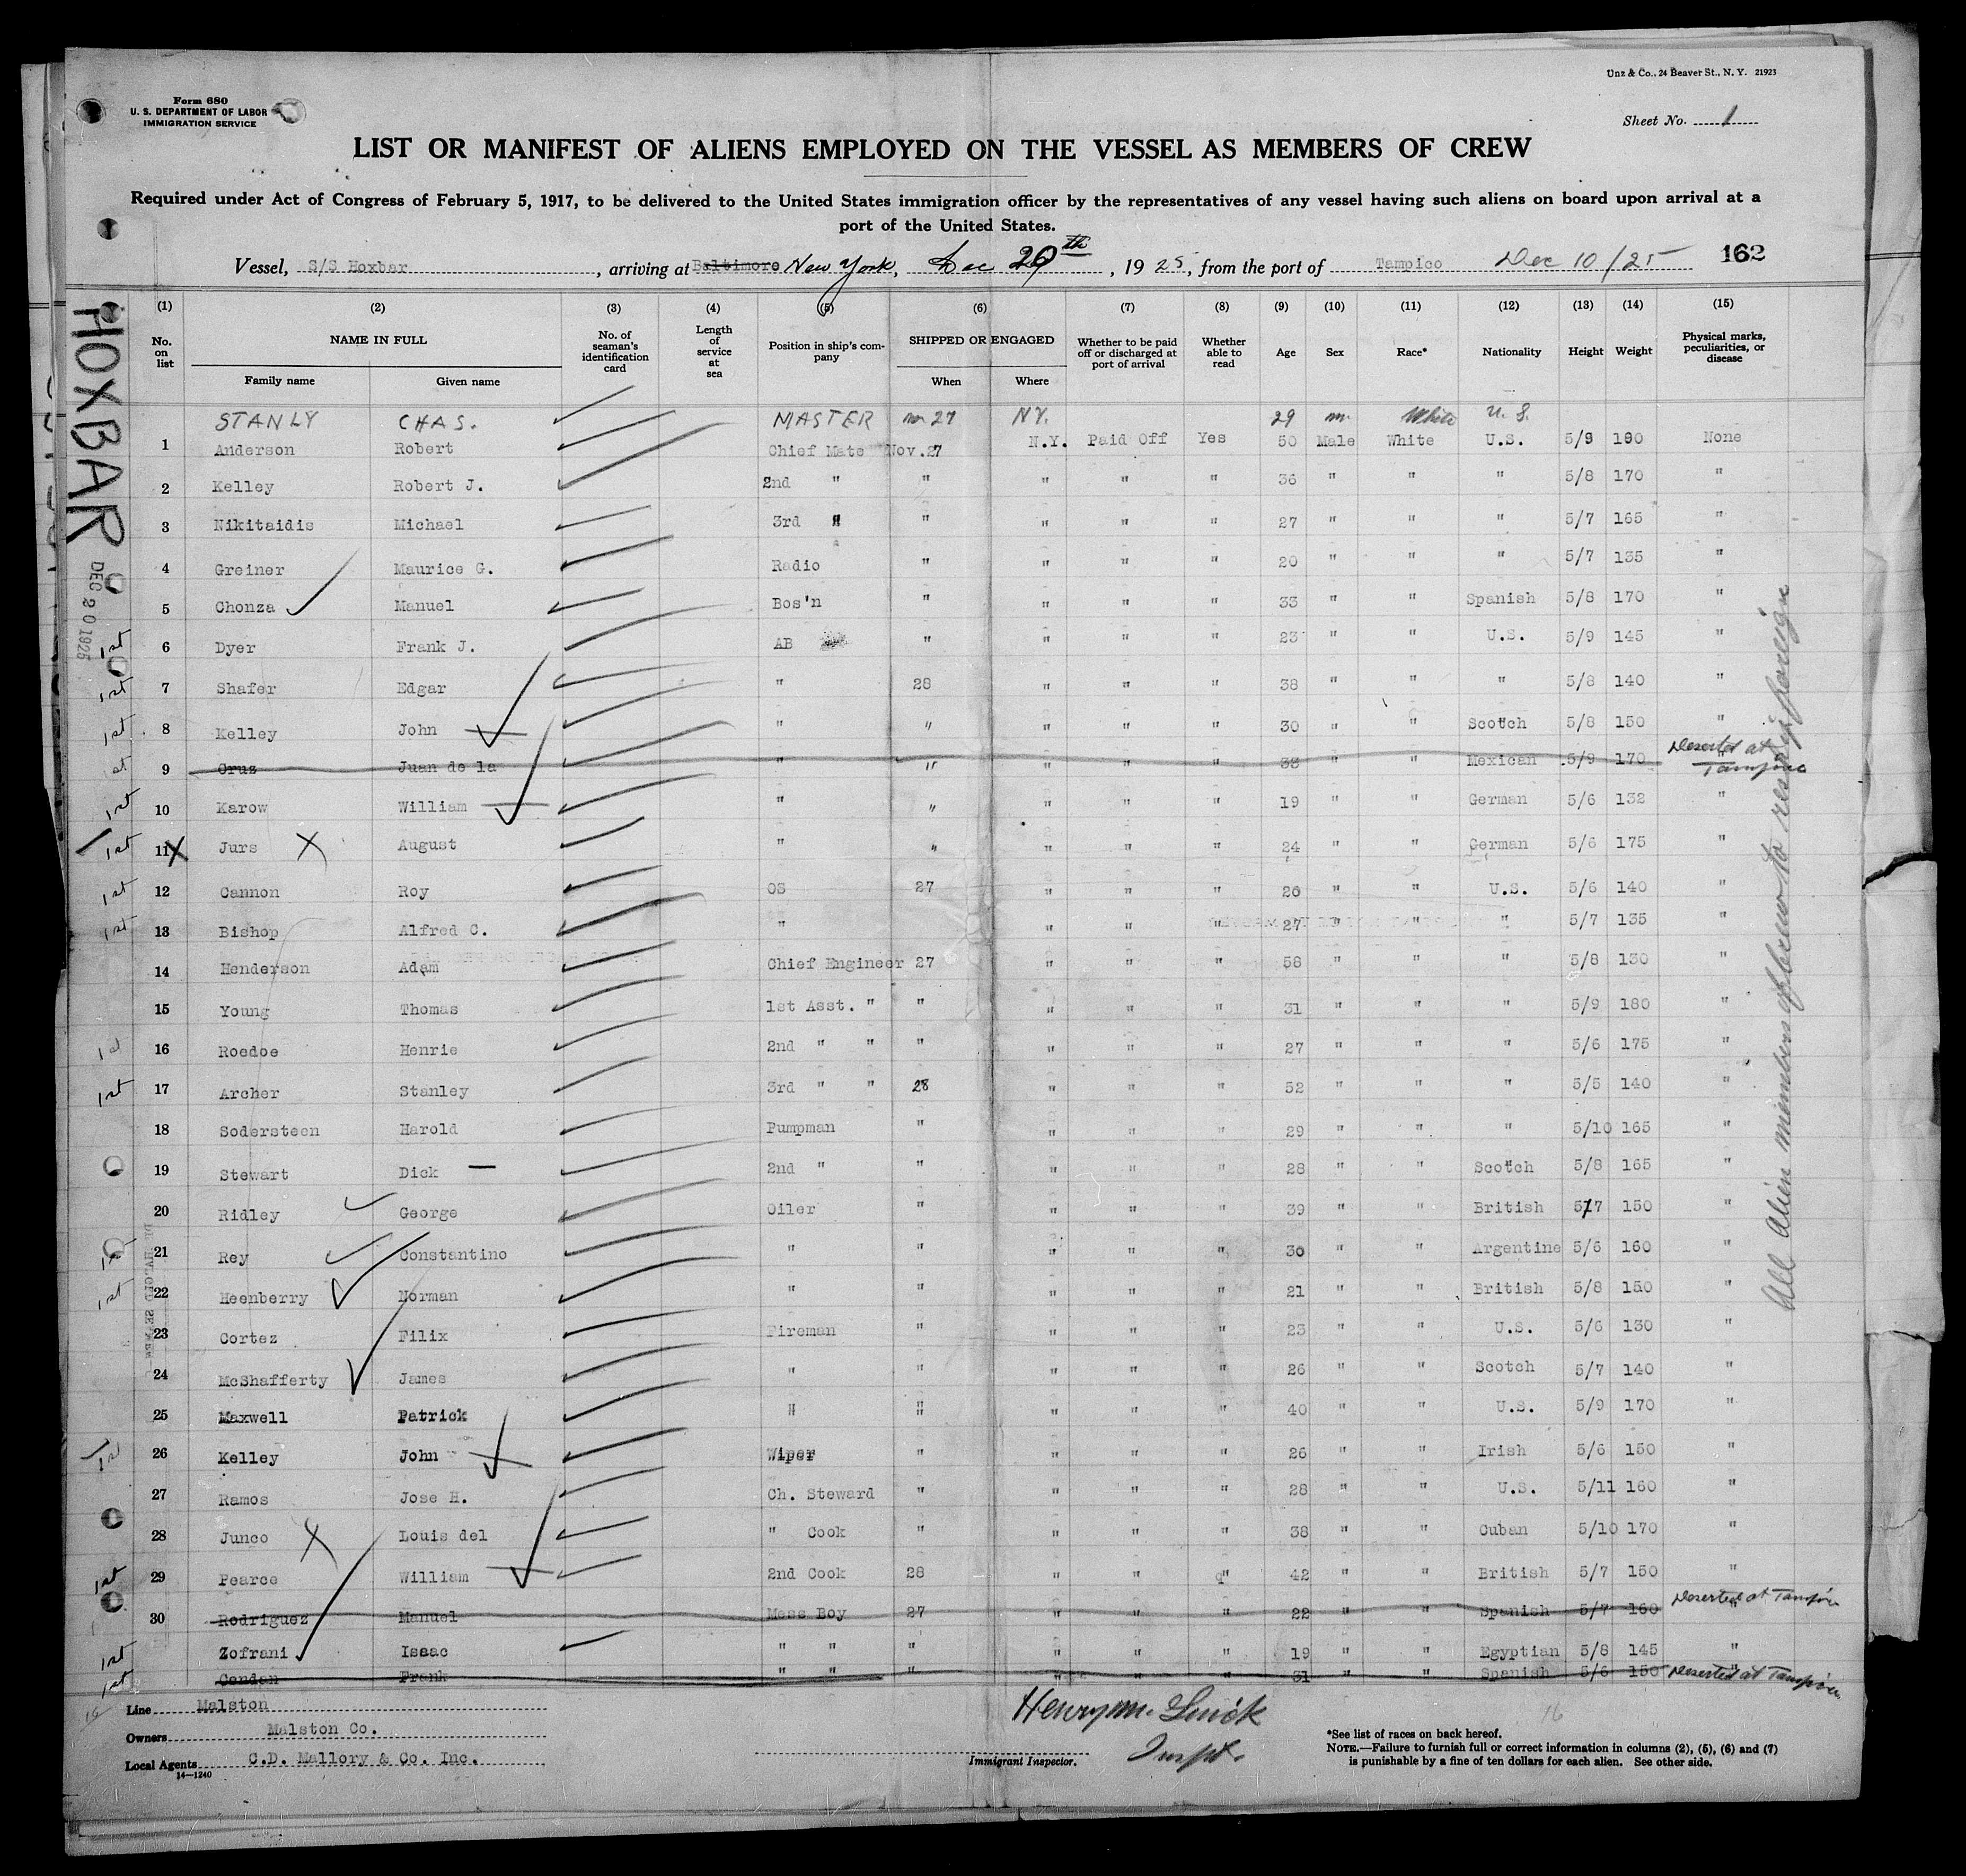 Unz & Co., 24 Beaver St., N. Y. 21923
Form 680
U. S. DEPARTMENT OF LABOR
IMMIGRATION SERVICE
Sheet No. 1
LIST OR MANIFEST OF ALIENS EMPLOYED ON THE VESSEL AS MEMBERS OF CREW
Required under Act of Congress of February 5, 1917, to be delivered to the United States immigration officer by the representatives of any vessel having such aliens on board upon arrival at a
port of the United States.
Vessel, S/S Hoxbar, arriving at Baltimore New York, Dec 20th, 1925, from the port of Tampico Dec 10/25 162
(1) (2) (3) (4) (5) (6) (7) (8) (9) (10) (11) (12) (13) (14) (15)
No. on list NAME IN FULL Family name Given name No. of seaman's identification card Length of service at sea Position in ship's company SHIPPED OR ENGAGED When Where Whether to be paid off or discharged at port of arrival Whether able to read Age Sex Race* Nationality Height Weight Physical marks, peculiarities, or disease
STANLY CHAS. MASTER 27 N.Y. 29 m. White U.S.
1 Anderson Robert Chief Mate Nov.27 N.Y. Paid Off Yes 50 Male White U.S. 5/9 190 None
2 Kelley Robert J. 2nd " " " " " 36 " " " 5/8 170 "
3 Nikitaidis Michael 3rd " " " " " 27 " " " 5/7 165 "
4 Greiner Maurice G. Radio " " " " 20 " " " 5/7 135 "
5 Chonza Manuel Bos'n " " " " 33 " " Spanish 5/8 170 "
1st 6 Dyer Frank J. AB " " " " 23 " " U.S. 5/9 145 "
1st 7 Shafer Edgar " 28 " " " 38 " " " 5/8 140 "
1st 8 Kelley John " " " " " 30 " " Scotch 5/8 150 "
st 9 Cruz Juan de la " " " " " 38 " " Mexican 5/9 170 " Deserted at Tampico
1st 10 Karow William " " " " " 19 " " German 5/6 132 "
1st 11 X Jurs X August " " " " " 24 " " German 5/6 175 "
1st 12 Cannon Roy OS 27 " " " 26 " " U.S. 5/6 140 "
1st 13 Bishop Alfred C. " " " " 27 " " " 5/7 135 "
14 Henderson Adam Chief Engineer 27 " " " 58 " " " 5/8 130 "
15 Young Thomas 1st Asst. " " " " " 31 " " " 5/9 180 "
1st 16 Roedoe Henrie 2nd " " " " " " 27 " " " 5/6 175 "
1st 17 Archer Stanley 3rd " " 28 " " " 52 " " " 5/5 140 "
18 Sodersteen Harold Pumpman " " " " 29 " " " 5/10 165 "
19 Stewart Dick — 2nd " " " " " 28 " " Scotch 5/8 165 "
20 Ridley George Oiler " " " " 39 " " British 5/7 150 "
1st 21 Rey Constantino " " " " " 30 " " Argentine 5/6 160 "
1st 22 Heenberry Norman " " " " " 21 " " British 5/8 150 "
23 Cortez Filix Fireman " " " " 23 " " U.S. 5/6 130 "
24 McShafferty James " " " " " 26 " " Scotch 5/7 140 "
25 Maxwell Patrick " " " " " 40 " " U.S. 5/9 170 "
1st 26 Kelley John Wiper " " " " 26 " " Irish 5/6 150 "
27 Ramos Jose H. Ch. Steward " " " " 28 " " U.S. 5/11 160 "
28 Junco X Louis del " Cook " " " " 38 " " Cuban 5/10 170 "
1st 29 Pearce William 2nd Cook 28 " " " 42 " " British 5/7 150 "
30 Rodriguez Manuel Mess Boy 27 " " " 22 " " Spanish 5/7 160 " Deserted at Tampico
1st Zofrani Isaac " " " " " " 19 " " Egyptian 5/8 145 "
1st Cendan Frank " " " " " " 31 " " Spanish 5/6 150 " Deserted at Tampico
HOXBAR
DEC 20 1925
All alien members of crew to reship foreign
Line Malston
Owners Malston Co.
Local Agents C.D. Mallory & Co. Inc.
14—1240
Henry M.
Inspt.
Immigrant Inspector.
16
*See list of races on back hereof.
NOTE.—Failure to furnish full or correct information in columns (2), (5), (6) and (7)
is punishable by a fine of ten dollars for each alien. See other side.